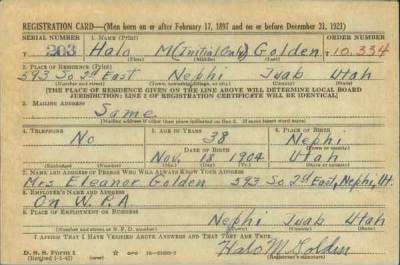 REGISTRATION CARD—(Men born on or after February 17, 1897 and on or before December 31, 1921)
SERIAL NUMBER 1. NAME (Print) ORDER NUMBER
203 Halo M(Initial Only) Golden 10.334
(First) (Middle) (Last)
2. PLACE OF RESIDENCE (Print)
593 So 2d East Nephi Juab Utah
(Number and street) (Town, township, village, or city) (County) (State)
[THE PLACE OF RESIDENCE GIVEN ON THE LINE ABOVE WILL DETERMINE LOCAL BOARD JURISDICTION; LINE 2 OF REGISTRATION CERTIFICATE WILL BE IDENTICAL]
3. MAILING ADDRESS
Same
[Mailing address if other than place indicated on line 2. If same insert word same]
4. TELEPHONE 5. AGE IN YEARS 6. PLACE OF BIRTH
No 38 Nephi
DATE OF BIRTH (Town or county)
Nov. 18 1904 Utah
(Exchange) (Number) (Mo.) (Day) (Yr.) (State or country)
7. NAME AND ADDRESS OF PERSON WHO WILL ALWAYS KNOW YOUR ADDRESS
Mrs Eleanor Golden 593 So 2d East, Nephi, Ut.
8. EMPLOYER'S NAME AND ADDRESS
On W.P.A
9. PLACE OF EMPLOYMENT OR BUSINESS
Nephi Juab Utah
(Number and street or R. F. D. number) (Town) (County) (State)
I AFFIRM THAT I HAVE VERIFIED ABOVE ANSWERS AND THAT THEY ARE TRUE.
D. S. S. Form 1
(Revised 1-5-42) (over) GPO
Halo M. Golden
(Registrant's signature)